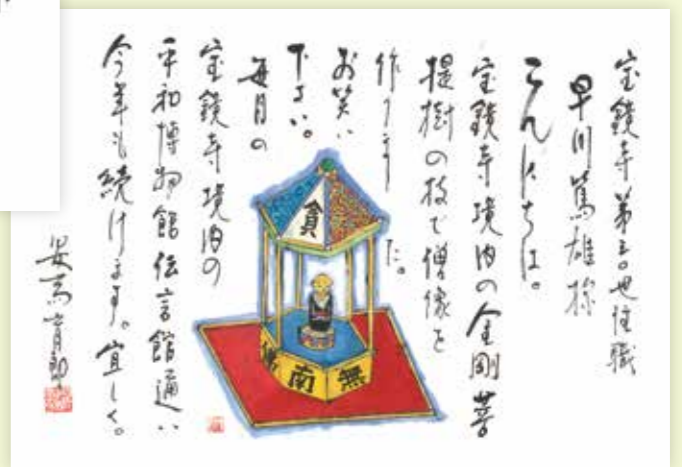 宝鏡寺第三〇世住職
早川篤雄様
こんにちは。
宝鏡寺境内の金剛菩
提樹の枝で僧像を
作りました。
お笑い
下さい。
毎月の
宝鏡寺境内の
平和博物館伝言館通い
今年も続けます。宜しく。
安斎育郎
貪
無南